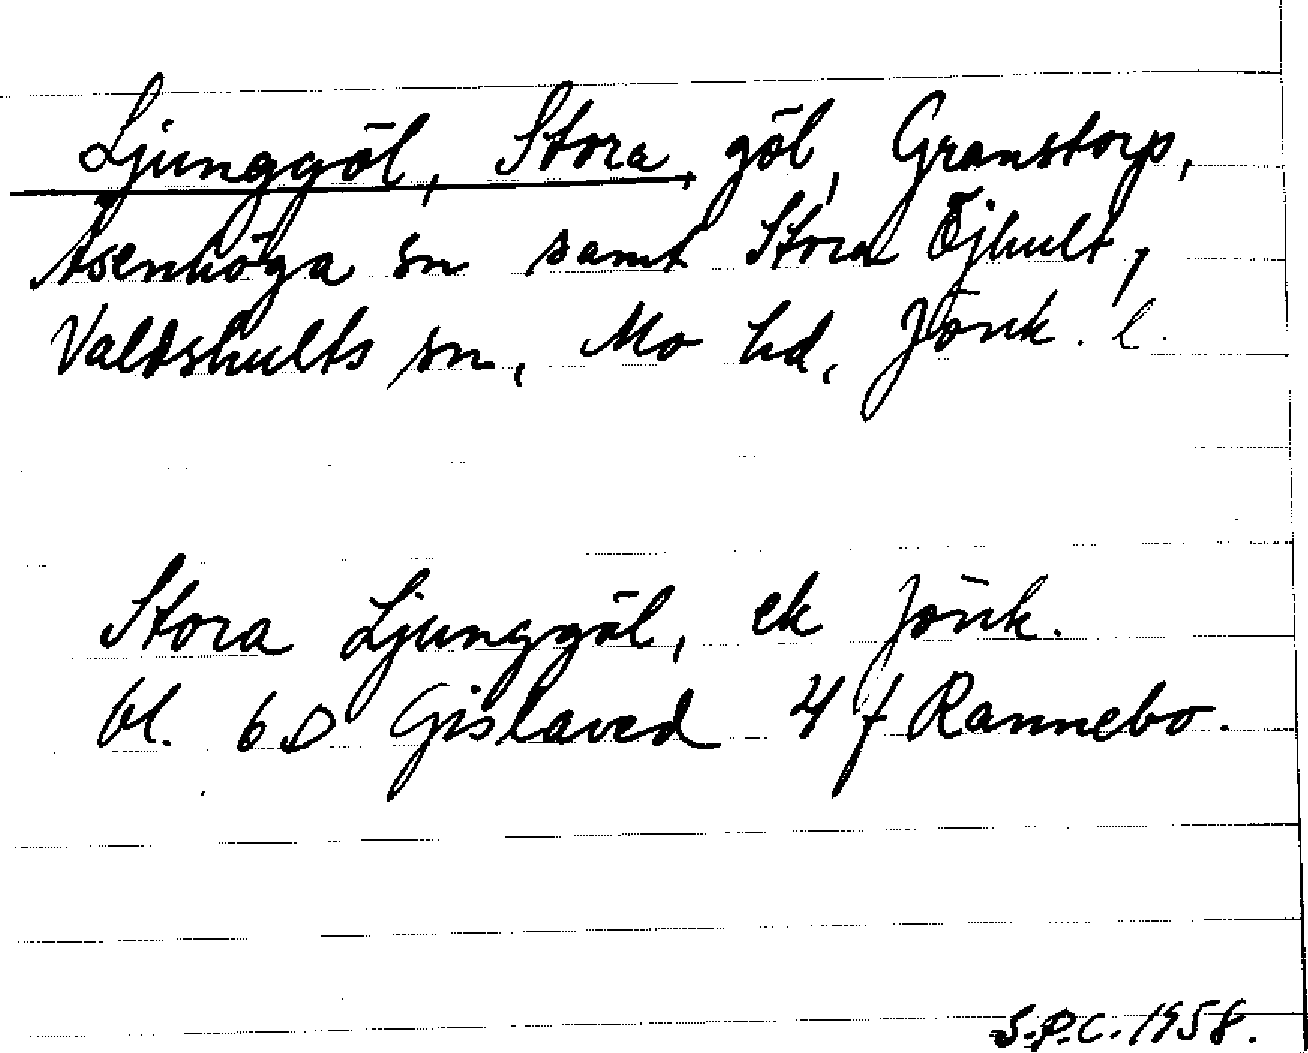 Ljunggöl, Stora, göl, Granstorp,
Åsenhöga sn samt Stora Öjhult,
Valdshults sn, Mo hd, Jönk. l.
Stora Ljunggöl, ek Jönk.
bl. 6 D Gislaved 4 f Rannebo.
S.P.C. 1958.